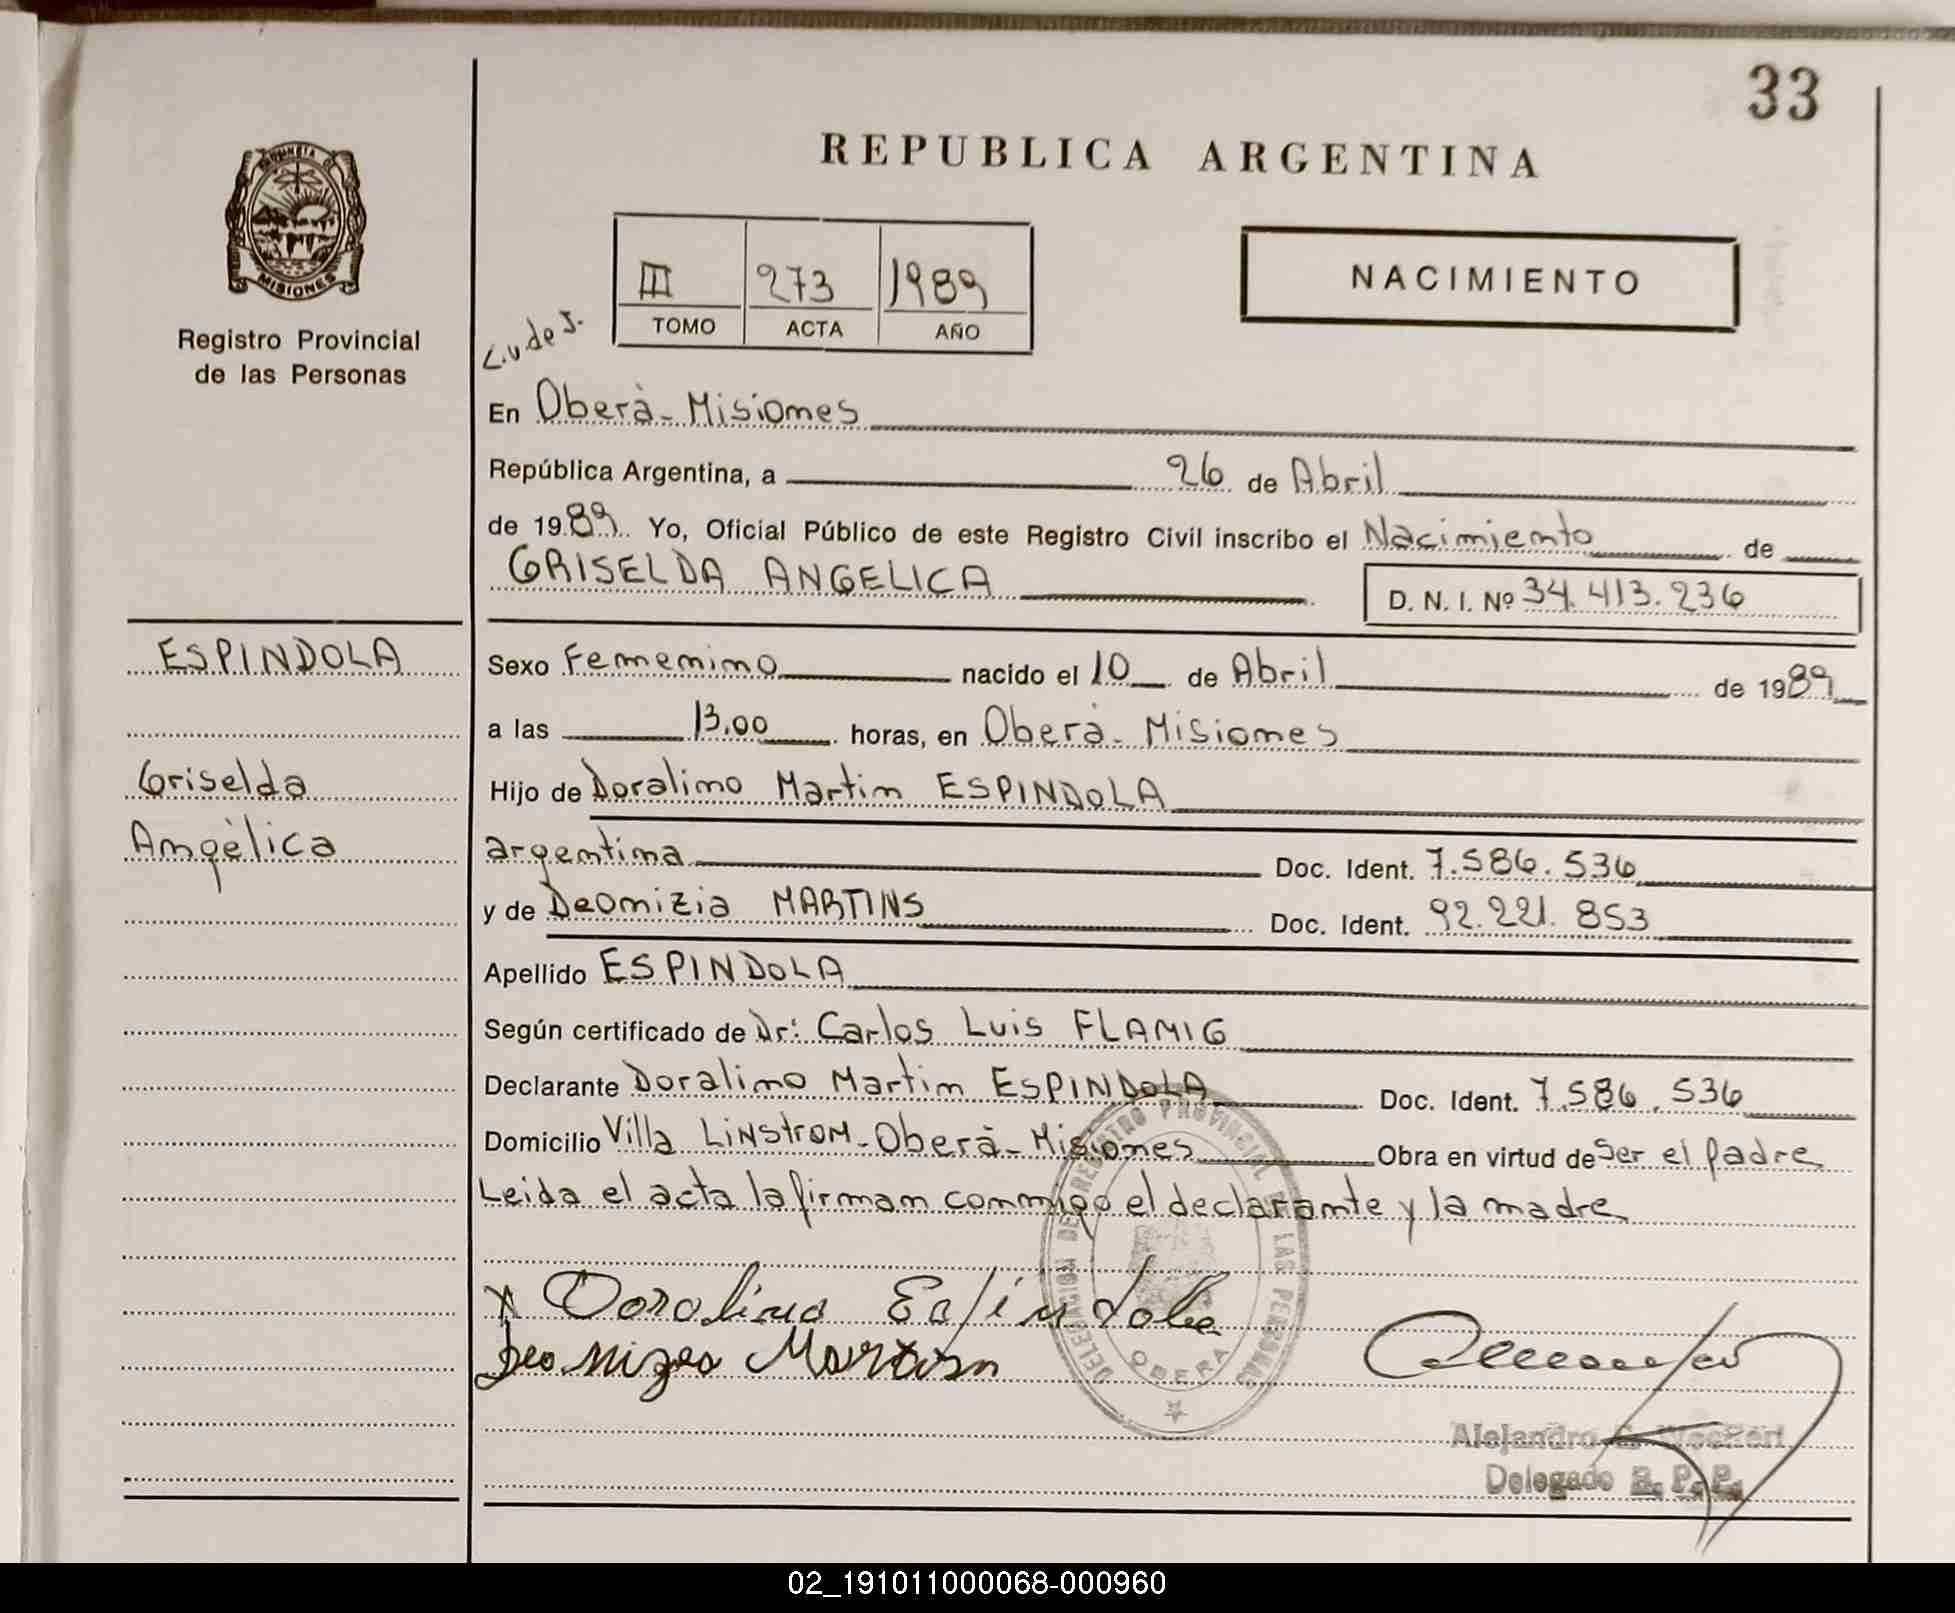 33
REPUBLICA ARGENTINA
PROVINCIA D
MISIONES
Registro Provincial
de las Personas
III 273 1989
TOMO ACTA AÑO
NACIMIENTO
En Oberà - Misiones
República Argentina, a 26 de Abril
de 1989 Yo, Oficial Público de este Registro Civil inscribo el Nacimiento de
GRISELDA ANGELICA
D. N. I. Nº 34.413.236
ESPINDOLA
Griselda
Angèlica
Sexo Femenino nacido el 10 de Abril de 1989
a las 13,00 horas, en Oberà - Misiones
Hijo de Doralino Martin ESPINDOLA
argentina Doc. Ident. 7.586.536
y de Deonizia MARTINS Doc. Ident. 92.221.853
Apellido ESPINDOLA
Según certificado de Dr: Carlos Luis FLAMIG
Declarante Doralino Martin ESPINDOLA Doc. Ident. 7.586.536
Domicilio Villa LiNstroM - Oberà - Misiones Obra en virtud de Ser el padre
Leida el acta la firman conmigo el declarante y la madre
x Doralino Espindola
Deonizia Martins
DELEGACION DE REGISTRO PROVINCIAL DE LAS PERSONAS
OBERA
Alejandro
Delegado R. P. P.
02_191011000068-000960